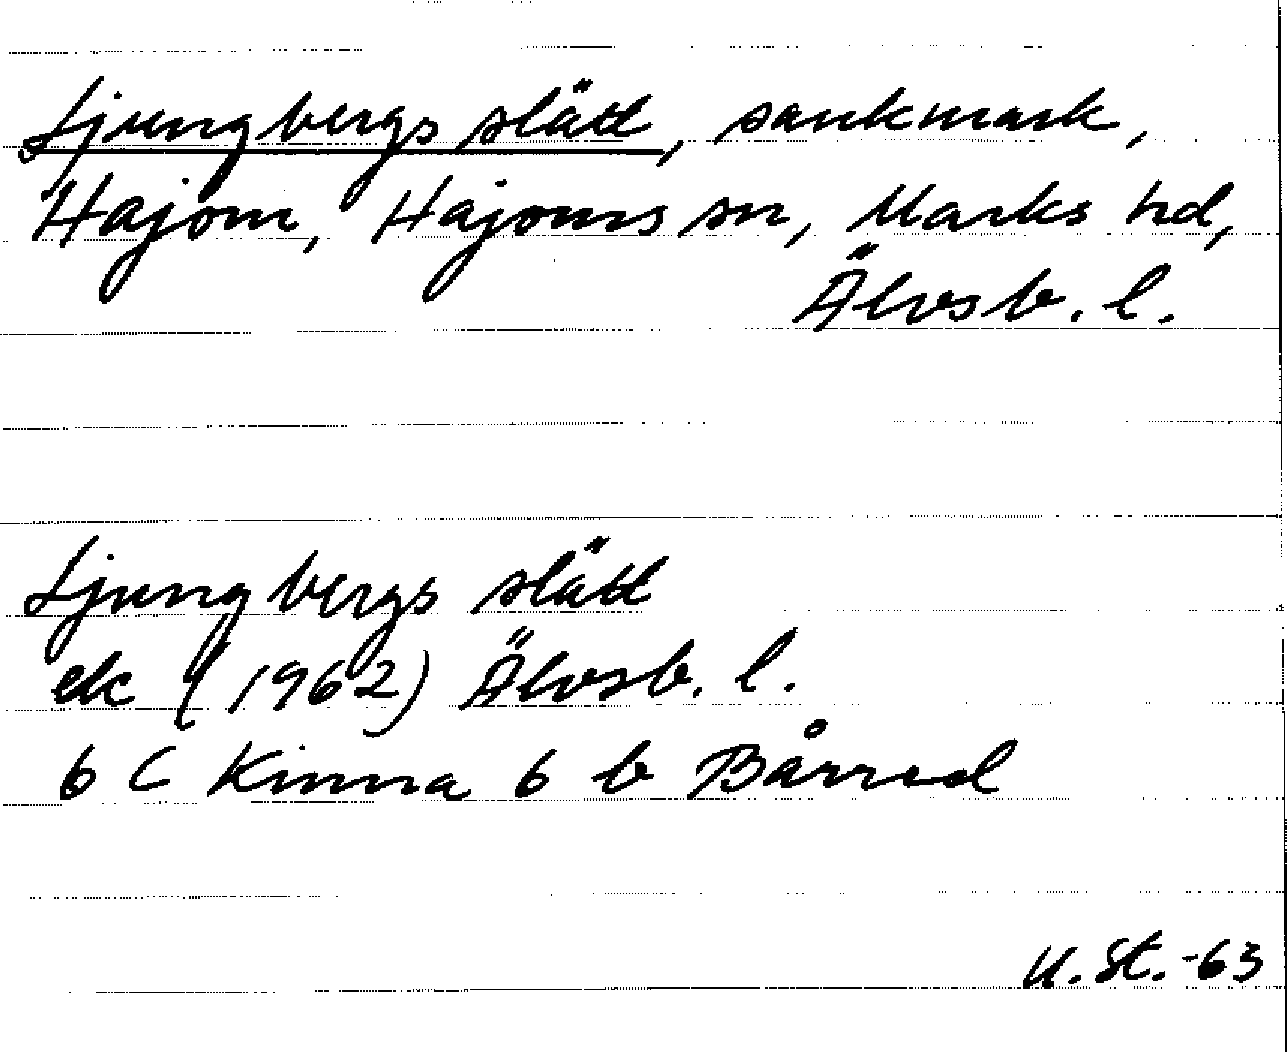 Ljungbergs slätt, sankmark,
Hajom, Hajoms sn, Marks hd,
Älvsb. l.
Ljungbergs slätt
ek (1962) Älvsb. l.
6 C Kinna 6 b Bårred
U. St. -63